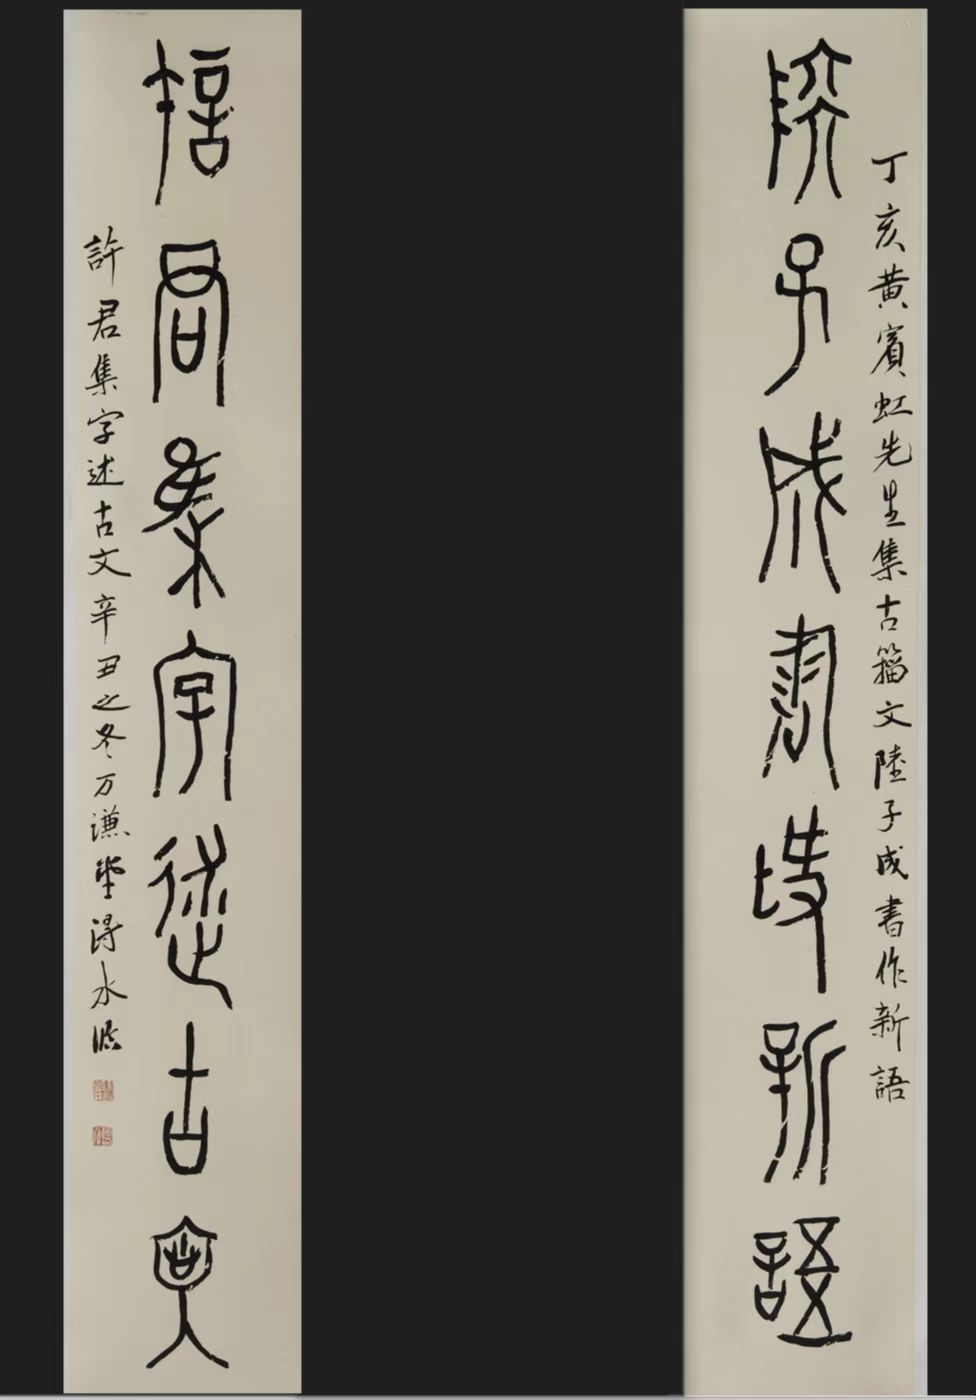 丁亥黃賓虹先生集古籀文陸子成書作新語
陸子成書作新語
許君集字述古文
許君集字述古文辛丑之冬万謙堂淂水臨